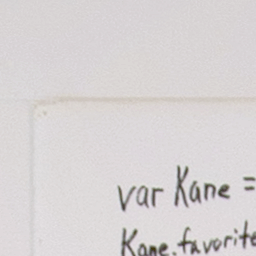 var Kane =
Kane.favorite